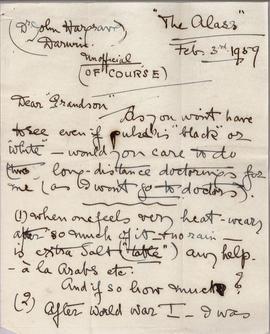 "The Alass"
(Dr John Hargrave
Darwin
Feb. 3rd 1959
unofficial
(OF COURSE)
Dear "Grandson"
As you won't have
to see even if pulse is "black" or
white" – would you care to do
two long-distance doctorings for
me (as I won't go to doctors).
(1) when one feels very heat-weary
after so much of it – & no rain –
is extra salt ("table") any help –
à la Arabs etc.
And if so how much?
(2) After World War I – I was